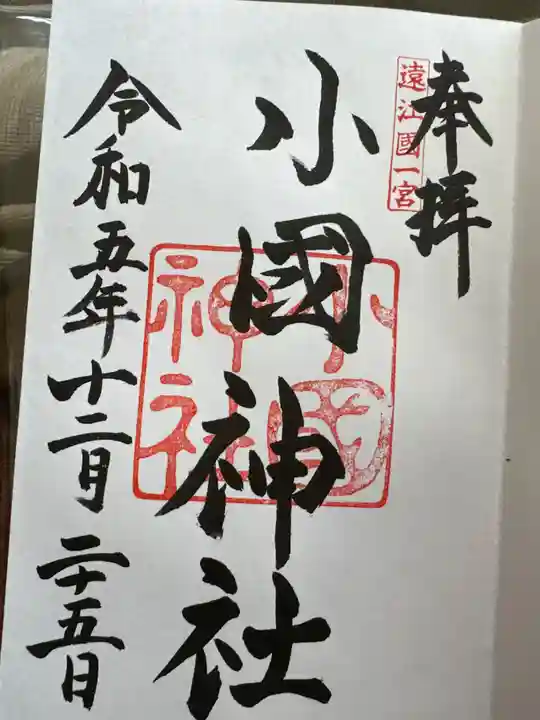 奉拝
遠江國一宮
小國神社
小國神社
令和五年十二月二十五日